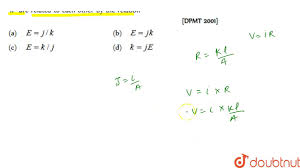 are related to each other by the relation
[DPMT 2001]
(a) E = j / k
(b) E = jk
(c) E = k / j
(d) k = jE
V = IR
R = Kl/A
J = i/A
V = i × R
V = i × Kl/A